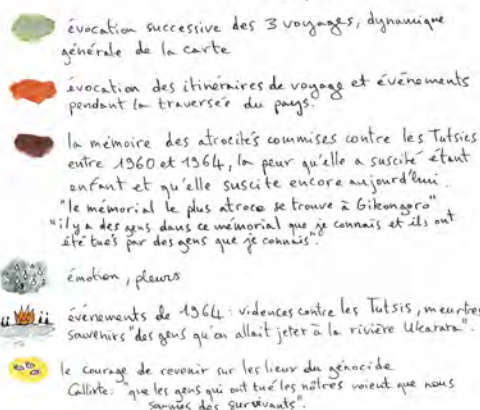 évocation successive des 3 voyages, dynamique
générale de la carte
évocation des itinéraires de voyage et événements
pendant la traversée du pays.
la mémoire des atrocités commises contre les Tutsies
entre 1960 et 1964, la peur qu'elle a suscité étant
enfant et qu'elle suscite encore aujourd'hui.
"le mémorial le plus atroce se trouve à Gikongoro"
"il y a des gens dans ce mémorial que je connais et ils ont
été tués par des gens que je connais".
émotion, pleurs
événements de 1964 : violences contre les Tutsis, meurtres
souvenirs "des gens qu'on allait jeter à la rivière Ukarara".
le courage de revenir sur les lieux du génocide
Callixte: "que les gens qui ont tué les nôtres voient que nous
sommes des survivants".